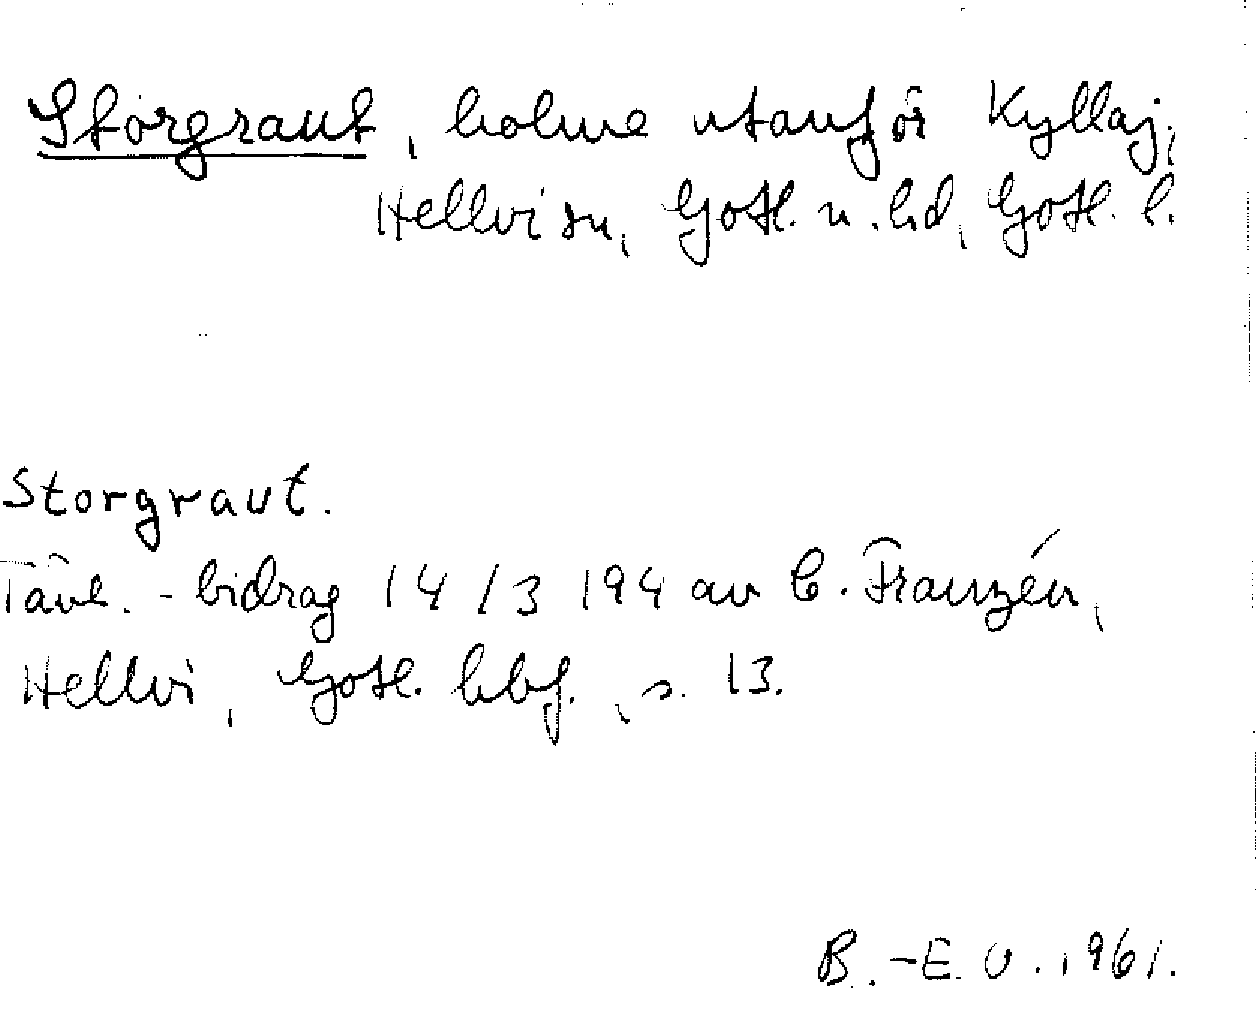 Storgraut, holme utanför Kyllaj,
Hellvi sn, Gotl. n. hd, Gotl. l.
Storgraut.
Tävl. - bidrag 14/3 194 av C. Franzén,
Hellvi, Gotl. hbf., s. 13.
B.-E. U. 1961.